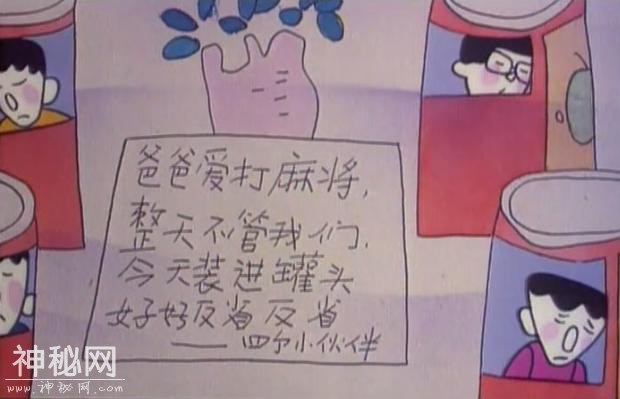 爸爸爱打麻将，
整天不管我们．
今天装进罐头
好好反省反省
——四个小伙伴
神秘网
www.神秘网.com